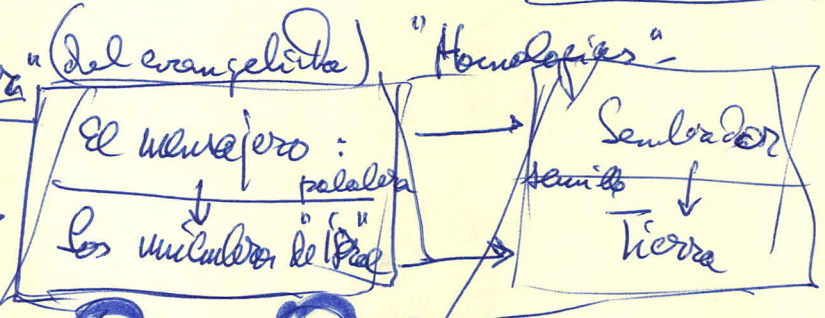 (del evangelista) "Homologías"
El mensajero :
palabra
Los miembros de "Israel"
Sembrador
semilla
Tierra